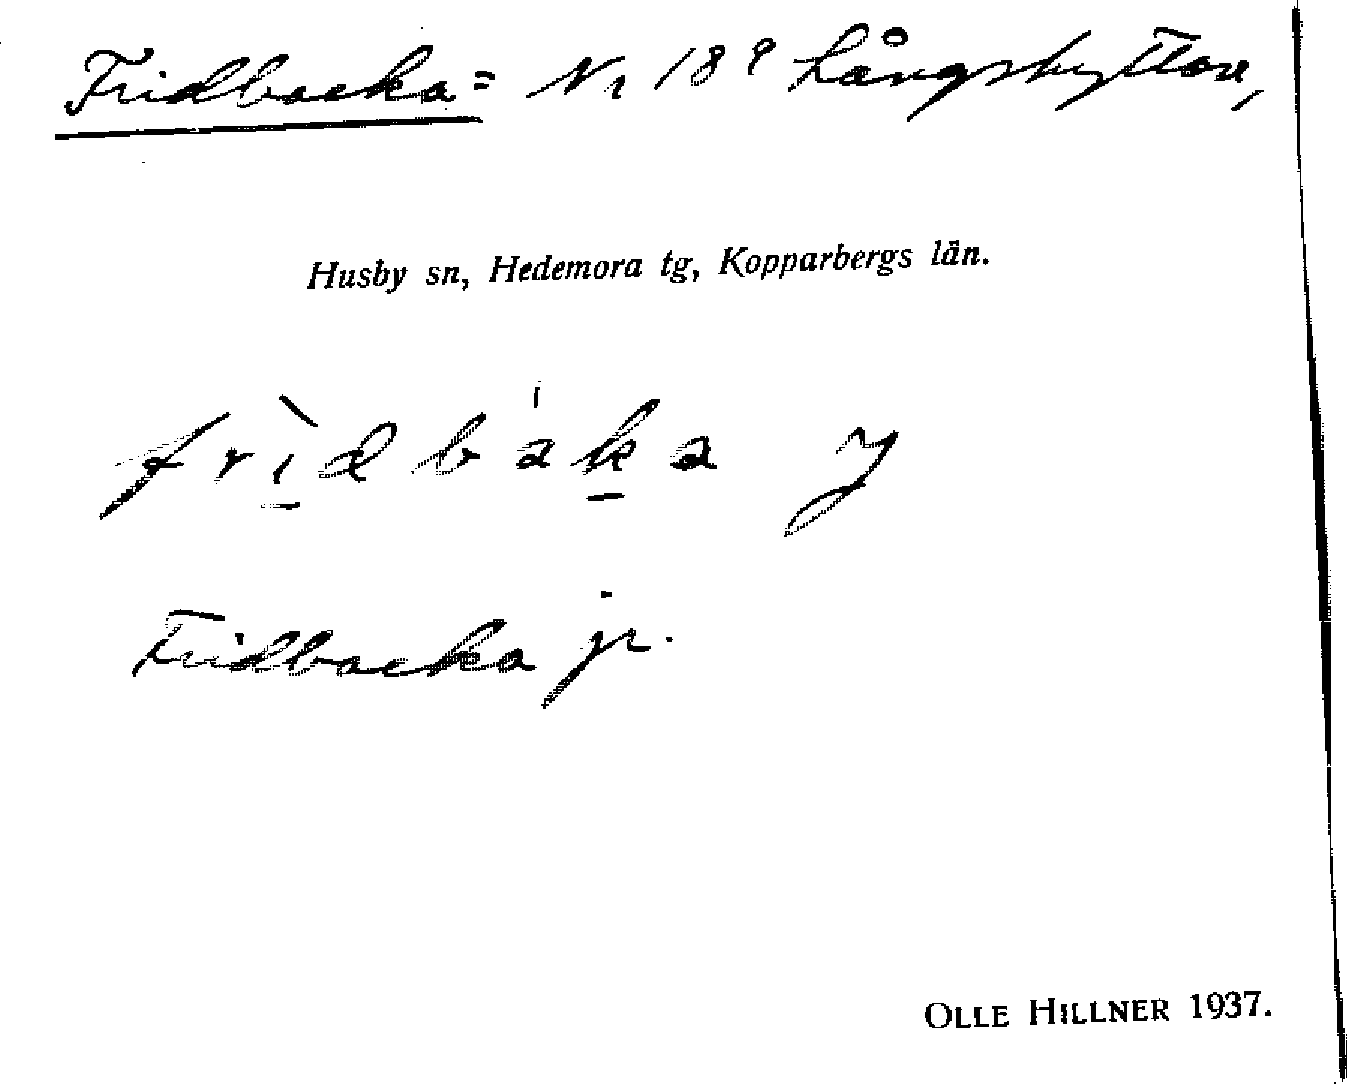 Fridbacka = Nr 189 Långshyttan,
Husby sn, Hedemora tg, Kopparbergs län.
frìdbáka
Fridbacka jr.
OLLE HILLNER 1937.